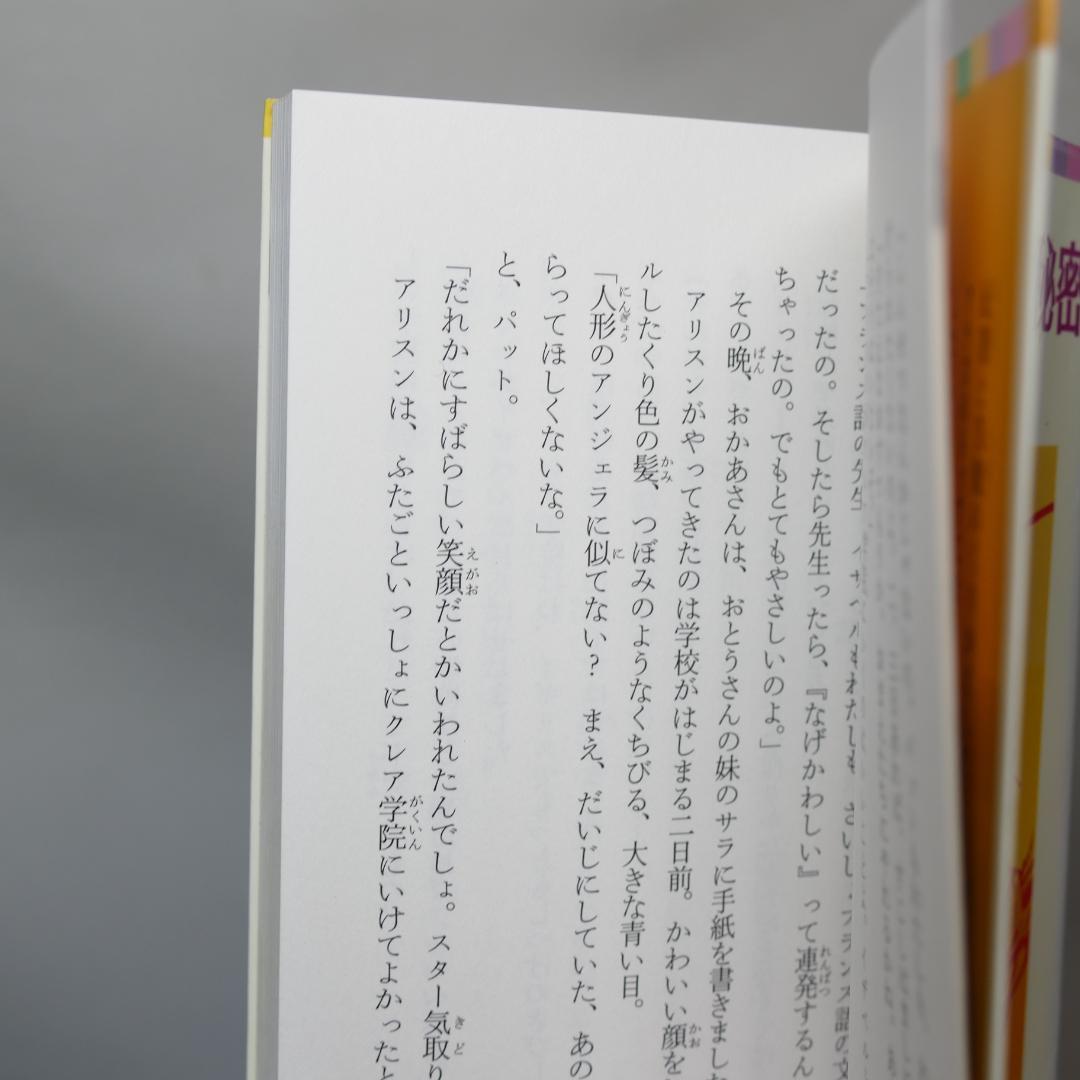 だったの。そしたら先生ったら、『なげかわしい』って連発するん
ちゃったの。でもとてもやさしいのよ。」
その晩、おかあさんは、おとうさんの妹のサラに手紙を書きました
アリスンがやってきたのは学校がはじまる二日前。かわいい顔を
ルしたくり色の髪、つぼみのようなくちびる、大きな青い目。
「人形のアンジェラに似てない？　まえ、だいじにしていた、あの
らってほしくないな。」
と、パット。
「だれかにすばらしい笑顔だとかいわれたんでしょ。スター気取り
アリスンは、ふたごといっしょにクレア学院にいけてよかったと
秘密